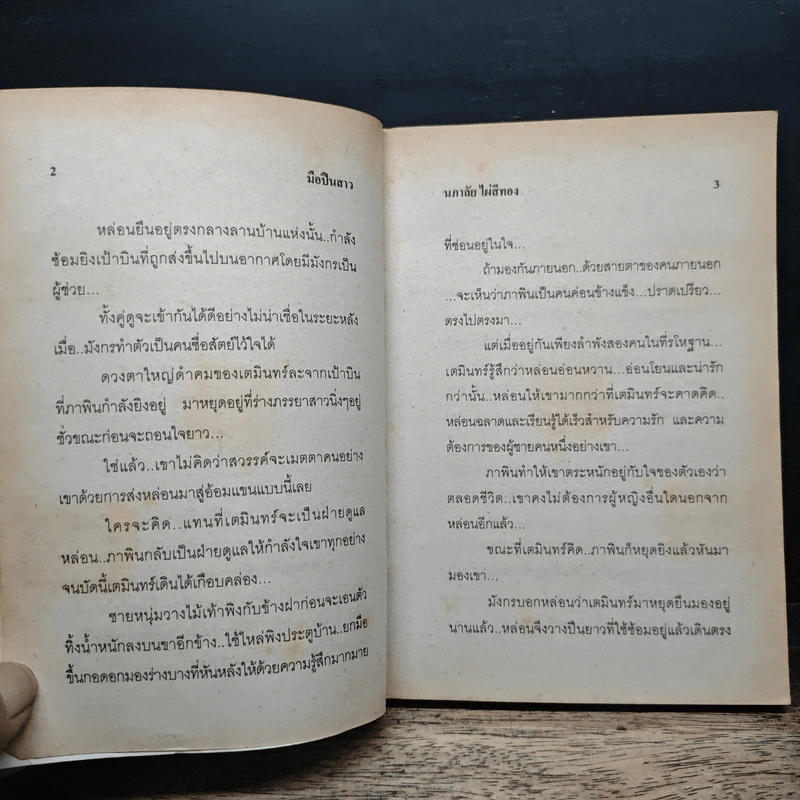 2
มือปืนสาว
หล่อนยืนอยู่ตรงกลางลานบ้านแห่งนั้น..กำลัง
ซ้อมยิงเป้าบินที่ถูกส่งขึ้นไปบนอากาศโดยมีมังกรเป็น
ผู้ช่วย...
ทั้งคู่ดูจะเข้ากันได้ดีอย่างไม่น่าเชื่อในระยะหลัง
เมื่อ..มังกรทำตัวเป็นคนซื่อสัตย์ไว้ใจได้
ดวงตาใหญ่ดำคมของเตมินทร์ละจากเป้าบิน
ที่ภาพินกำลังยิงอยู่ มาหยุดอยู่ที่ร่างภรรยาสาวนิ่งๆอยู่
ชั่วขณะก่อนจะถอนใจยาว...
ใช่แล้ว..เขาไม่คิดว่าสวรรค์จะเมตตาคนอย่าง
เขาด้วยการส่งหล่อนมาสู่อ้อมแขนแบบนี้เลย
ใครจะคิด..แทนที่เตมินทร์จะเป็นฝ่ายดูแล
หล่อน..ภาพินกลับเป็นฝ่ายดูแลให้กำลังใจเขาทุกอย่าง
จนบัดนี้เตมินทร์เดินได้เกือบคล่อง...
ชายหนุ่มวางไม้เท้าพิงกับข้างฝาก่อนจะเอนตัว
ทิ้งน้ำหนักลงบนขาอีกข้าง..ใช้ไหล่พิงประตูบ้าน..ยกมือ
ขึ้นกอดอกมองร่างบางที่หันหลังให้ด้วยความรู้สึกมากมาย
นภาลัย ไผ่สีทอง
3
ที่ซ่อนอยู่ในใจ...
ถ้ามองกันภายนอก..ด้วยสายตาของคนภายนอก
...จะเห็นว่าภาพินเป็นคนค่อนข้างแข็ง...ปราดเปรียว...
ตรงไปตรงมา...
แต่เมื่ออยู่กันเพียงลำพังสองคนในที่รโหฐาน...
เตมินทร์รู้สึกว่าหล่อนอ่อนหวาน...อ่อนโยนและน่ารัก
กว่านั้น..หล่อนให้เขามากกว่าที่เตมินทร์จะคาดคิด..
หล่อนฉลาดและเรียนรู้ได้เร็วสำหรับความรัก และความ
ต้องการของผู้ชายคนหนึ่งอย่างเขา...
ภาพินทำให้เขาตระหนักอยู่กับใจของตัวเองว่า
ตลอดชีวิต..เขาคงไม่ต้องการผู้หญิงอื่นใดนอกจาก
หล่อนอีกแล้ว...
ขณะที่เตมินทร์คิด..ภาพินก็หยุดยิงแล้วหันมา
มองเขา...
มังกรบอกหล่อนว่าเตมินทร์มาหยุดยืนมองอยู่
นานแล้ว..หล่อนจึงวางปืนยาวที่ใช้ซ้อมอยู่แล้วเดินตรง